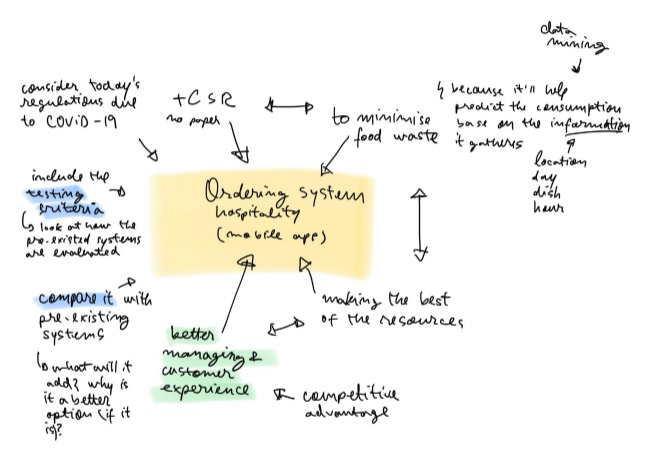 data
mining
consider today's
regulations due
to COVID-19
+CSR
no paper
to minimise
food waste
because it'll help
predict the consumption
base on the information
it gathers
location
day
dish
hour
include the
testing
criteria
look at how the
pre-existed systems
are evaluated
Ordering system
hospitality
(mobile app)
compare it with
pre-existing
systems
what will it
add? why is
it a better
option (if it
is)?
better
managing &
customer
experience
making the best
of the resources
competitive
advantage